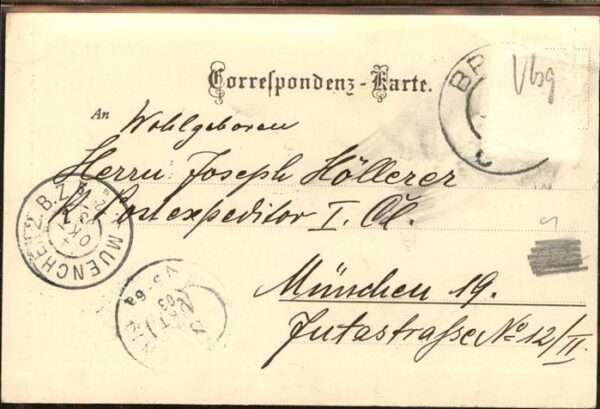 Correspondenz-Karte.
An
Wohlgeboren
Herrn Joseph Höllerer
K. Postexpeditor I. Cl.
München 19.
Jutastrasse No 12/II.
BR
Vbg
MUENCHEN
Z.B.Z.
OKT
03